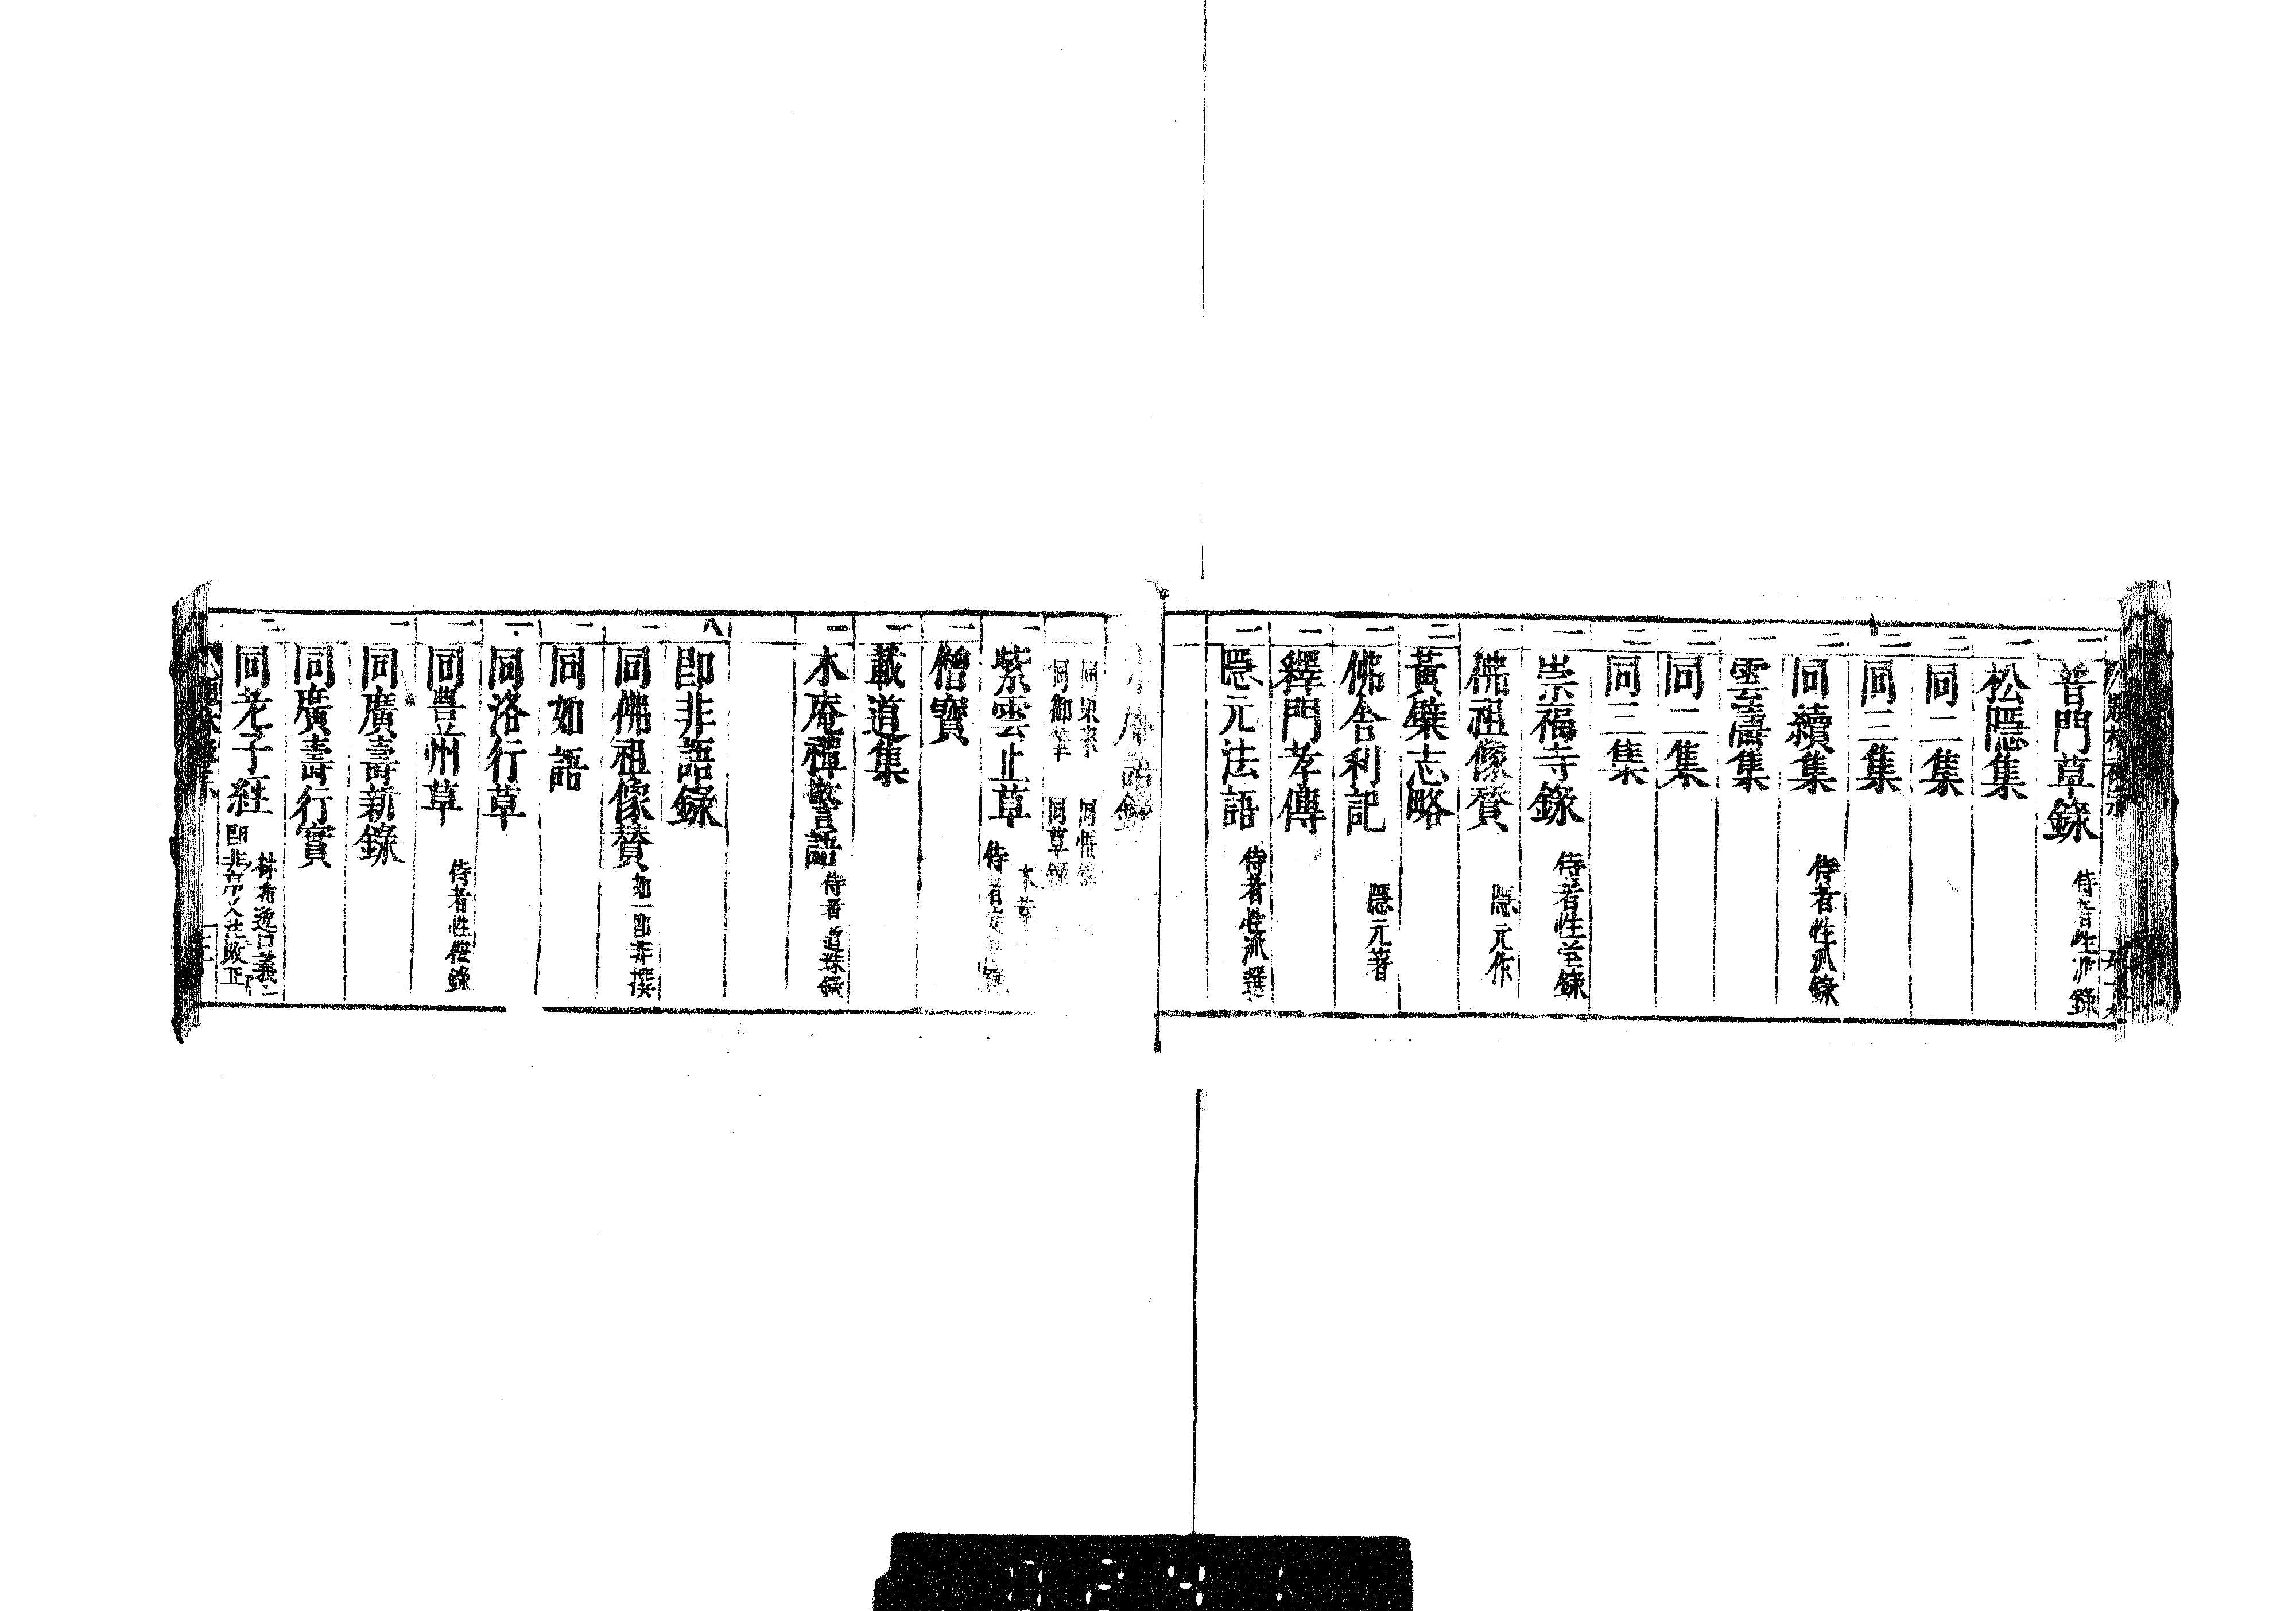 一 普門草錄 侍者性派錄
一 松隱集
二 同二集
二 同三集
二 同續集 侍者性派錄
一 雲濤集
二 同二集
二 同三集
一 崇福寺錄 侍者性[] 錄
一 佛祖像贊 隱元作
二 黃檗志略
一 佛舍利記 隱元著
一 釋門孝傳
一 隱元法語 侍者性派選
木庵語錄
同東來 同 同
同御華 同草錄
一 紫雲止草 侍者 錄
一 僧寶
一 載道集
一 木庵禪警語 侍者道珠錄
八 即非語錄
一 同佛祖像贊 如一即非撰
一 同如語
一 同洛行草
一 同豐州草 侍者性侒錄
一 同廣壽新錄
一 同廣壽行實
二 同老子經 林希逸口義 即非 人注改正